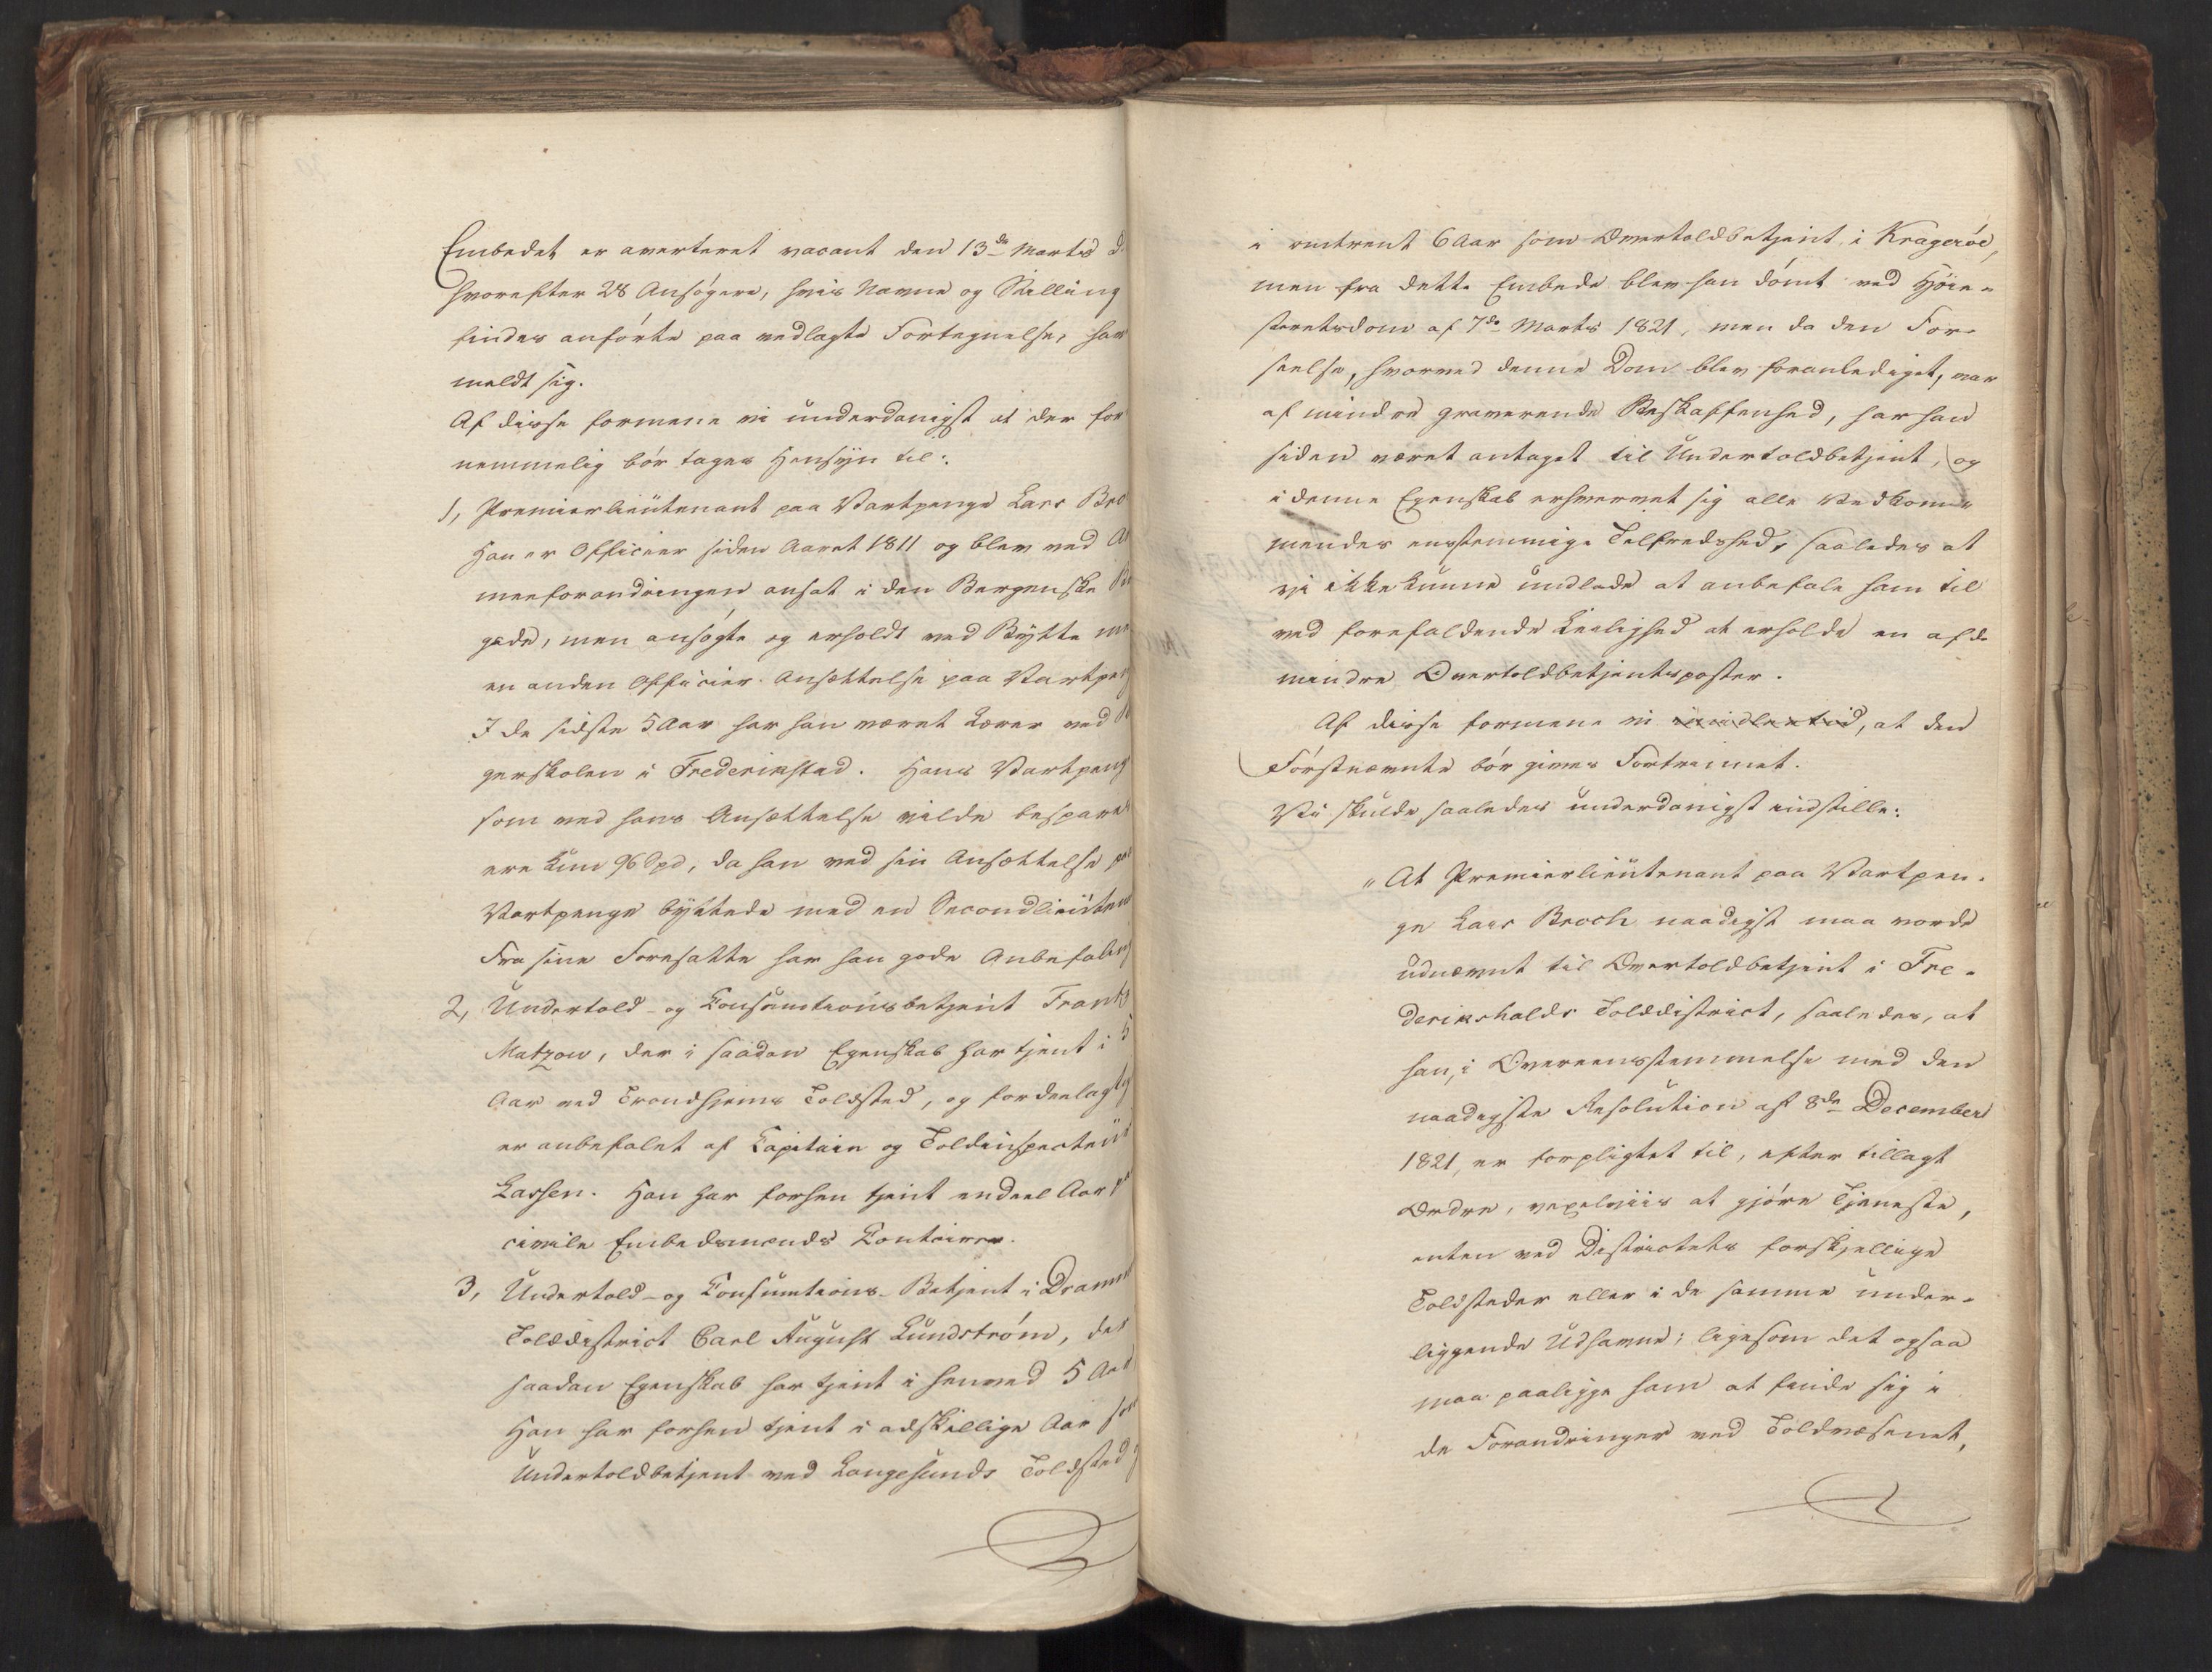 Embedet er averteret vacant den 13de Marts d.
hvorefter 28 Ansøgere, hvis Navne og Stilling
findes anførte paa vedlagte Fortegnelse, have
meldt sig.
Af disse formene vi underdanigst at der for
nemmelig bør tages Hensyn til:
1, Premierlieutenant paa Vartpenge Lars Bro
Han er Officier siden Aaret 1811 og blev ved Ar
meeforandringen ansat i den Bergenske Bri
gade, men ansøgte og erholdt ved Bytte med
en anden Officier Ansættelse paa Vartpeng
I de sidste 5 Aar har han været Lærer ved B
gerskolen i Frederikstad. Hans Vartpeng
som ved hans Ansættelse vilde bespares
ere kun 96 Spd, da han ved sin Ansættelse paa
Vartpenge byttede med en Secondlieuten
Fra sine Foresatte har han gode Anbefaling
2, Undertold- og Consumtionsbetjent Frants
Matzow, der i saadan Egenskab har tjent i 5
Aar ved Trondhjems Toldsted, og fordeelagtig
er anbefalet af Capitain og Toldinspecteur
Lassen. Han har forhen tjent endeel Aar paa
civile Embedsmænds Contoirer.
3, Undertold- og Consumtions-Betjent i Dramm
Tolddistrict Carl August Lundstrøm, der
saadan Egenskab har tjent i henved 5 Aar
Han har forhen tjent i adskillige Aar som
Undertoldbetjent ved Langesunds Toldsted
i omtrent 6 Aar som Overtoldbetjent i Kragerøe,
men fra dette Embede blev han dømt ved Høie-
steretsdom af 7de Marts 1821, men da den For-
seelse, hvorved denne Dom blev foranlediget, var
af mindre graverende Beskaffenhed, har han
siden været antaget til Undertoldbetjent, og
i denne Egenskab erhvervet sig alle Vedkom-
mendes eenstemmige Tilfredshed, saaledes at
vi ikke kunne undlade at anbefale ham til
ved forefaldende Leilighed at erholde en af de
mindre Overtoldbetjentsposter.
Af disse formene vi imidlertid, at den
Førstnævnte bør gives Fortrinnet.
Vi skulde saaledes underdanigst indstille:
"At Premierlieutenant paa Vartpen-
ge Lars Broch naadigst maa vorde
udnævnt til Overtoldbetjent i Fre-
derikshalds Tolddistrict, saaledes, at
han, i Overeensstemmelse med den
naadigste Resolution af 8de December
1821, er forpligtet til, efter tillagt
Ordre, vexelviis at gjøre Tjeneste,
enten ved Districtets forskjellige
Toldsteder eller i de samme under-
liggende Udhavne; ligesom det ogsaa
maa paaligge ham at finde sig i
de Forandringer ved Toldvæsenet,